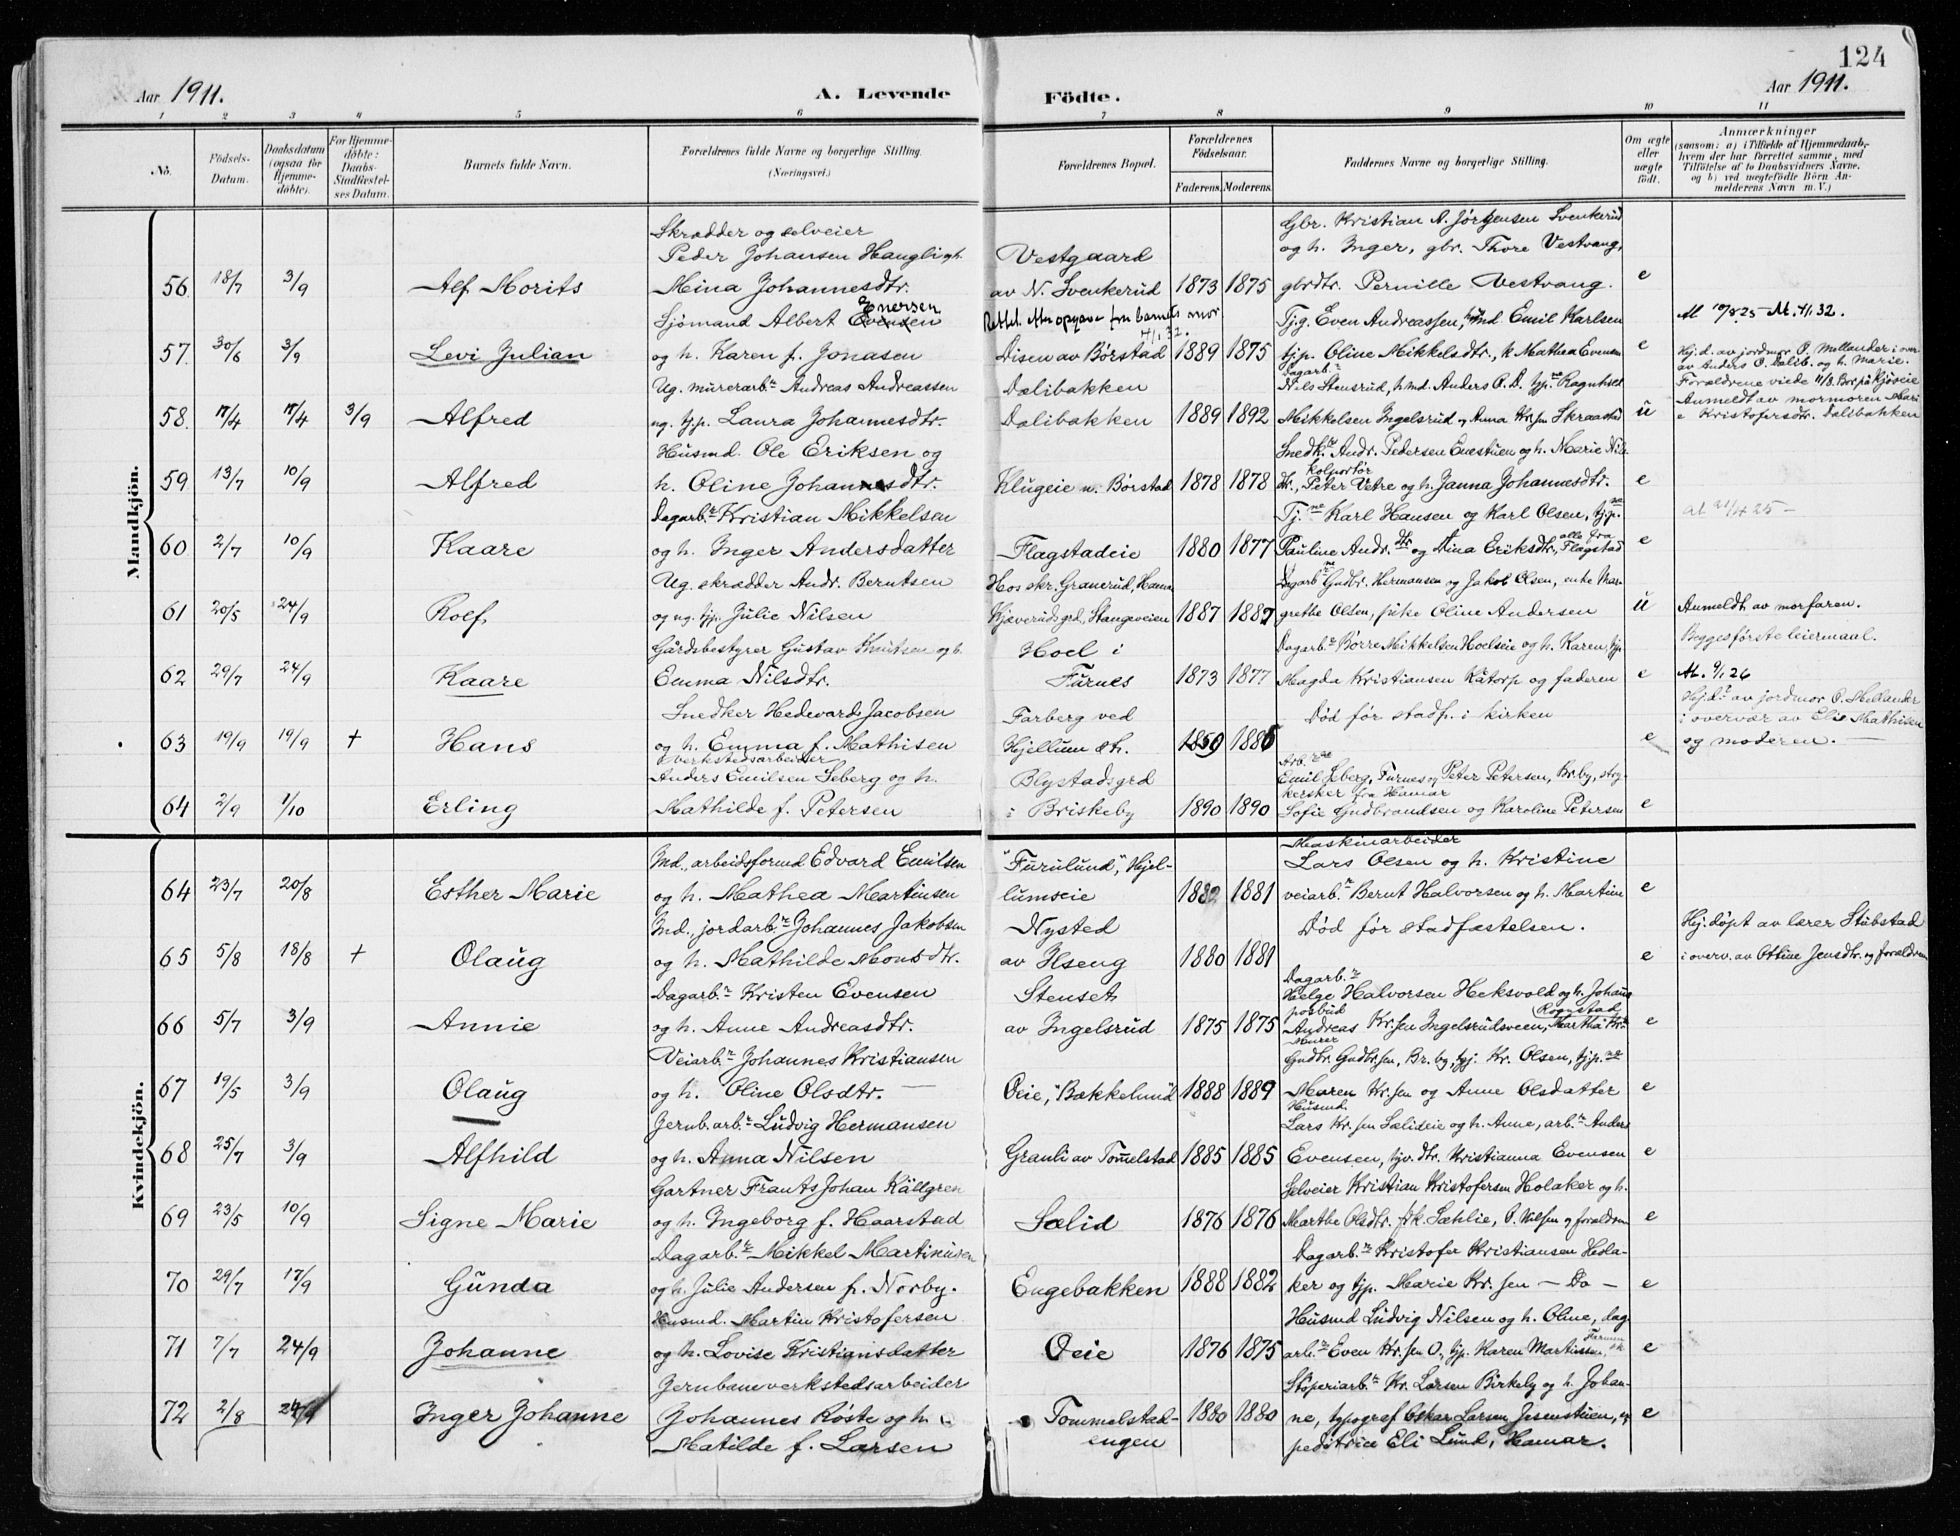 124
Aar 1911. A. Levende Födte. Aar 1911.
1 2 3 4 5 6 7 8 9 10 11
No. Födsels-Datum. Daabsdatum (ogsaa for Hjemme-døbte). For Hjemme-døbte: Daabs-Stadfæstel-ses Datum. Barnets fulde Navn. Forældrenes fulde Navne og borgerlige Stilling. (Næringsvei.) Forældrenes Bopæl. Forældrenes Födselsaar. Faderens. Moderens. Faddernes Navne og borgerlige Stilling. Om ægte eller uægte født. Anmærkninger (saasom: a) i Tilfælde af Hjemmedaab, hvem der har forrettet samme, med Tilföielse af to Daabsvidners Navne. og b) ved uægtefödte Börn An-melderens Navn m. V.)
Mandkjön.
Skrædder og selveier Gbr. Kristian A. Jørgensen Svenkerud
Peder Johansen Haugli og h. Vestgaard og h. Inger, gbr. Thore Vestvang,
56 18/7 3/9 Alf Morits Mina Johannesdtr. av N. Svenkerud 1873 1875 gbrdtr. Pernille Vestvang. e
Sjömand Albert Evensen Enersen Rettet efter opgave fra barnets mor 4/1.32. Tj.g. Even Andreassen, Emil Karlsen At 10/8.25 - At. 4/1.32.
57 30/6 3/9 Levi Julian og h. Karen f. Jonasen Disen av Børstad 1889 1875 tjp. Oline Mikkelsdtr., Mathea Evensen e Hj.d. av jordmor O. Mellander i over-
av Anders O. Dalib. og h. Marie.
Ug. murerarb. Andreas Andreassen Dalibakken Dagarb. Nils Stensrud, hmd. Anders O. D. tjp. Ragnhild Forældrene viede
58 17/4 17/4 3/9 Alfred ug. tjp. Laura Johannesdtr. Dalibakken 1889 1892 Mikkelsen Ingelsrud og Anna Kr.sen Skraastad ü Anmeldt av mormoren Mari-
e Kristofersdtr. Dalibakken
Husmd. Ole Eriksen og Snedk. Andr. Pedersen Enestuen og h. Marie Nils-
59 13/7 10/9 Alfred h. Oline Johannesdtr. Klugeie u. Børstad 1878 1878 dtr., kolportør Peter Vetre og h. Janna Johannesdtr. e
Dagarb. Kristian Mikkelsen Tj. Karl Hansen og Karl Olsen, tjp. at 21/4 25 -
60 2/7 10/9 Kaare og h. Inger Andersdatter Flagstadeie 1880 1877 Pauline Andr. dtr og Nina Eriksdtr., alle fra Flagstad e
Ug. skrædder Andr. Berntsen Hos skr. Granerud, Hamar Dagarb. Gudbr. Hermansen og Jakob Olsen, enke Mar-
61 20/5 24/9 Rolf og ug. tjp. Julie Nilsen Kjæverudsgrd, Stangeveien 1887 1887 grethe Olsen, pike Oline Andersen ü Anmeldt av morfaren.
Gårdsbestyrer Gustav Knutsen og h. Hoel i Dagarb. Børre Mikkelsen Hoelseie og h. Karen, tjp. Begges første leiermaal.
62 29/7 24/9 Kaare Emma Nilsdtr. Furnes 1873 1877 Magda Kristiansen Kåtorp og faderen e At. 9/1 26
Snedker Hedevard Jacobsen Farberg ved Død før stadf. i kirken Hj.d. av jordmor O. Mellander
63 19/9 19/9 + Hans og h. Emma f. Mathisen Hjellum st. 1859 1886 e i overvær av Elis Mathisen
og moderen.
verkstedsarbeider Anders Emilsen Seberg og h. Blystadsgrd Arb. Emil Seberg, Furnes og Peter Petersen, Br.by, stry-
64 2/9 1/10 Erling Mathilde f. Petersen i Briskeby 1890 1890 kersker fra Hamar Sofie Gudbrandsen og Karoline Petersen e
Kvindekjön.
Ind., arbeidsformd Edvard Emilsen "Furulund", Hjel- Maskinarbeider Lars Olsen og h. Kristine
64 23/7 20/8 Esther Marie og h. Mathea Martinsen lumseie 1882 1881 veiarb. Bernt Halvorsen og h. Martine e
Ind., jordarb. Johannes Jakobsen Nysted Død før stadfæstelsen. Hj.døpt av lærer Stubstad
65 5/8 18/8 + Olaug og h. Mathilde Monsdtr. av Hseng 1880 1881 e i overv. av Ottine Jensdtr. og forældrene
Dagarb. Kristen Evensen Stenset Dagarb. Helge Halvorsen Heksvold og h. Johana
66 5/7 3/9 Annie og h. Anne Andreasdtr. av Ingelsrud 1875 1875 postbud Andreas Kr.sen Ingelsrudsveen, Martha Kr. Rognstad e
Veiarb. Johannes Kristiansen Murer Gudbr. Gudbr.sen, Br.by, tjg. Kr. Olsen, tjp.
67 19/5 3/9 Olaug og h. Oline Olsdtr. Oeie, "Bækkelund" 1888 1889 Maren Kr.sen og Anne Olsdatter e
Jernb.arb. Ludvig Hermansen Husmd. Lars Kr.sen Sælideie og h. Anne, arb. Anders
68 25/7 3/9 Alfhild og h. Anna Nilsen Granli av Tommelstad 1885 1885 Evensen, tjv. dtr. Kristianna Evensen e
Gartner Frants Johan Källgren Selveier Kristian Kristofersen Holaker og h.
69 23/5 10/9 Signe Marie og h. Ingeborg f. Haarstad Sælid 1876 1876 Marthe Olsdtr. frk. Sæhlie, P. Nilsen og forældrene e
Dagarb. Mikkel Martinusen Dagarb. Kristofer Kristiansen Hola-
70 29/7 17/9 Gunda og h. Julie Andersen f. Norby. Engebakken 1888 1882 ker og tjp. Marie Kr.sen - Do - e
Husmd. Martin Kristofersen Husmd Ludvig Nilsen og h. Oline, dag-
71 7/7 24/9 Johanne og h. Lovise Kristiansdatter Oeie 1876 1875 arb. Even Kr.sen O., tjp. Karen Martinsen, e
Jernbaneverkstedsarbeider Støperiarb. Kr. Larsen Birkely og h. Johan-
72 2/8 24/9 Inger Johanne Johannes Røste og h. Tommelstad- 1880 1880 ne, typograf Oskar Larsen Jesenstuen, ex- e
Matilde f. Larsen engen peditrice Eli Lund, Hamar.